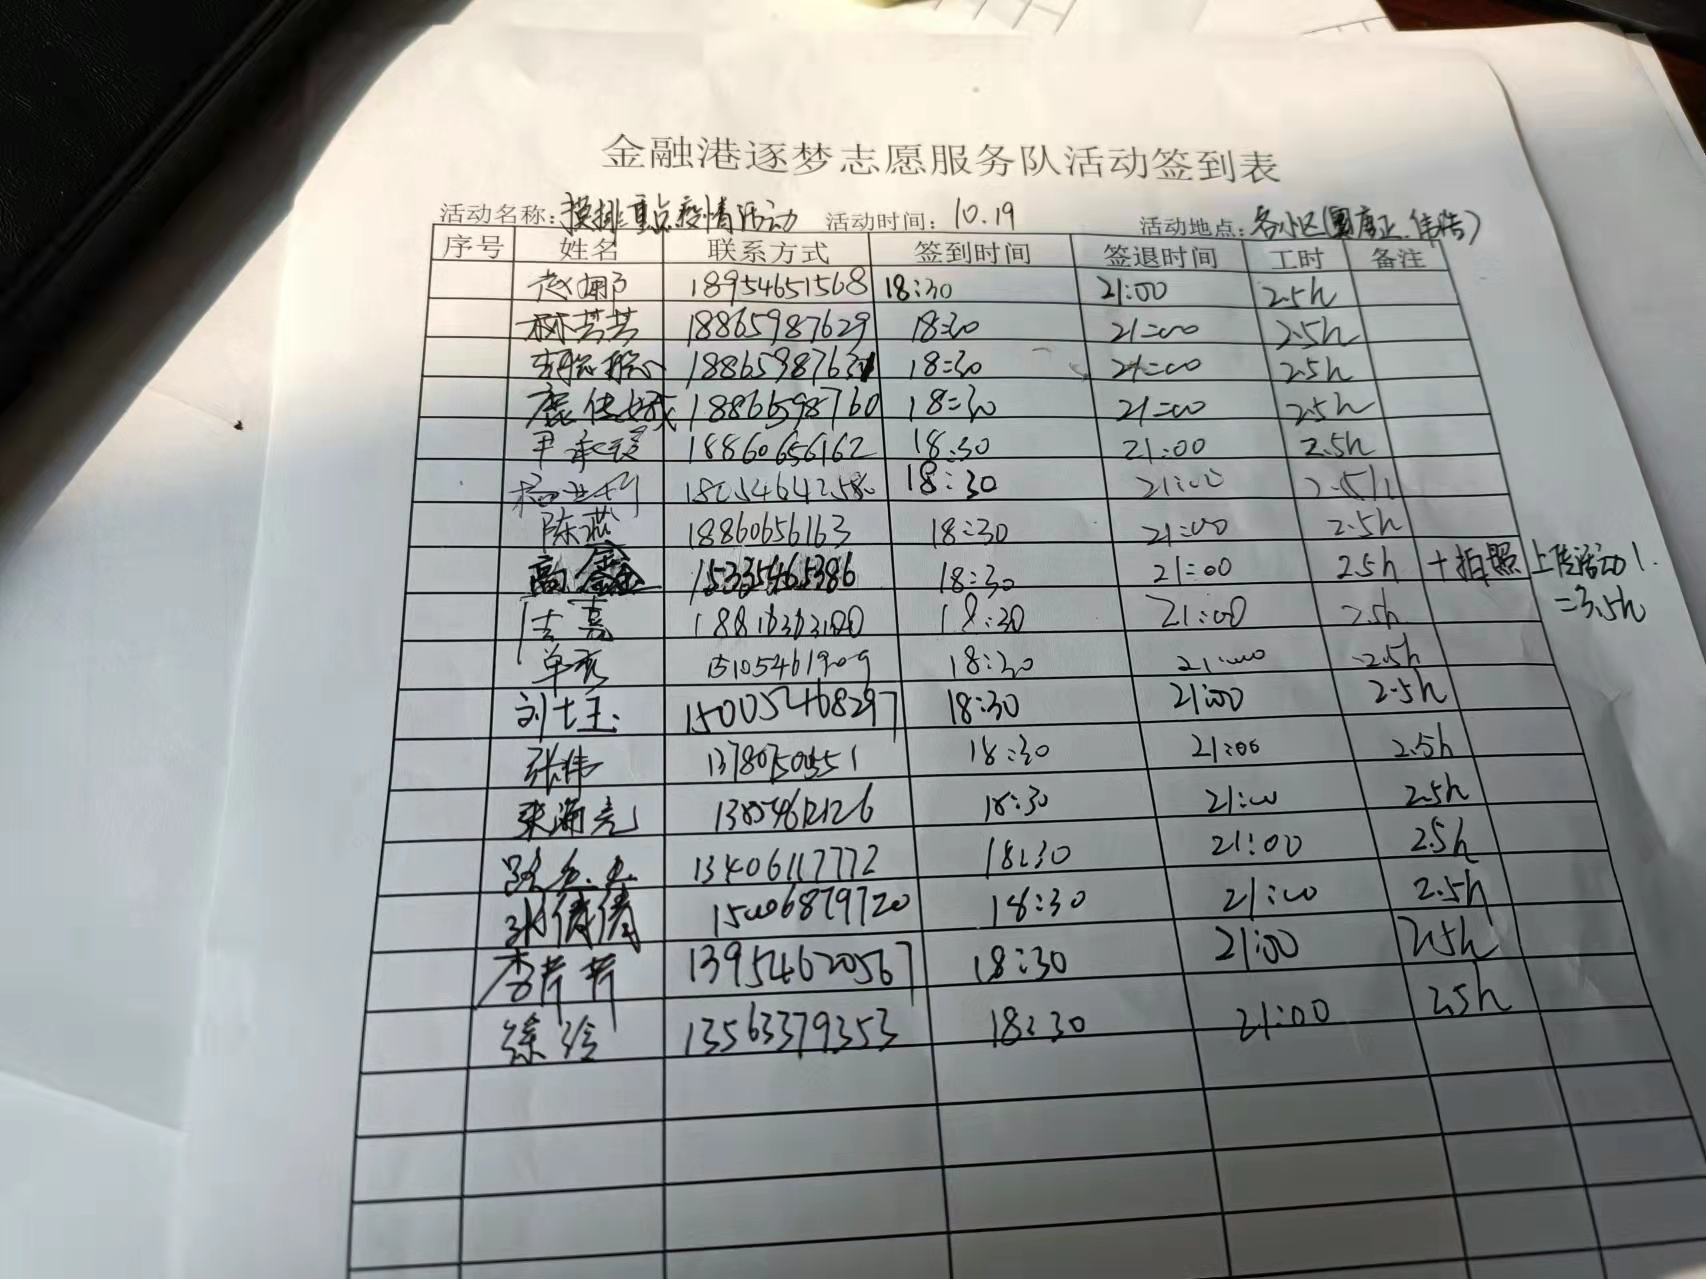 金融港逐梦志愿服务队活动签到表
活动名称：摸排重点疫情活动 活动时间：10.19 活动地点：各小区
序号 姓名 联系方式 签到时间 签退时间 工时 备注
赵娜 18954651568 18:30 21:00 2.5h
林芳芳 18865987629 18:30 21:00 2.5h
18:30 21:00 2.5h
1886598760 18:30 21:00 2.5h
尹承 18860656162 18:30 21:00 2.5h
18:30 21:00 2.5h
陈燕 18860656163 18:30 21:00 2.5h
高鑫 15335465386 18:30 21:00 2.5h +拍照 上传活动1.
=3.5h
18:30 21:00 2.5h
单 15105461909 18:30 21:00 2.5h
刘士玉 15005468297 18:30 21:00 2.5h
张伟 18:30 21:00 2.5h
海亮 18:30 21:00 2.5h
13406117772 18:30 21:00 2.5h
倩倩 15006879720 18:30 21:00 2.5h
李芹芹 13954620567 18:30 21:00 2.5h
徐玲 13563379353 18:30 21:00 2.5h